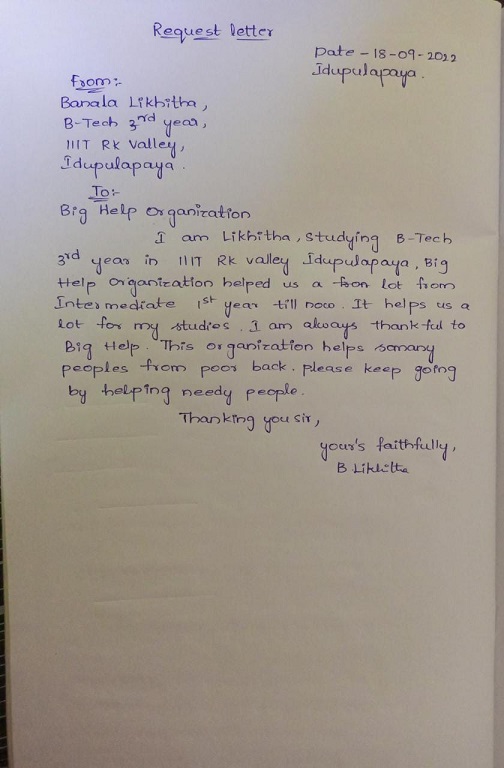 Request letter
Date - 18-09-2022
Idupulapaya.
From:-
Banala Likhitha,
B-Tech 3rd year,
IIIT RK Valley,
Idupulapaya.
To:-
Big Help Organization
I am Likhitha, studying B-Tech
3rd year in IIIT RK valley Idupulapaya, Big
Help Organization helped us a lot from
Intermediate 1st year till now. It helps us a
lot for my studies. I am always thankful to
Big Help. This organization helps somany
peoples from poor back. please keep going
by helping needy people.
Thanking you sir,
your's faithfully,
B Likhitha